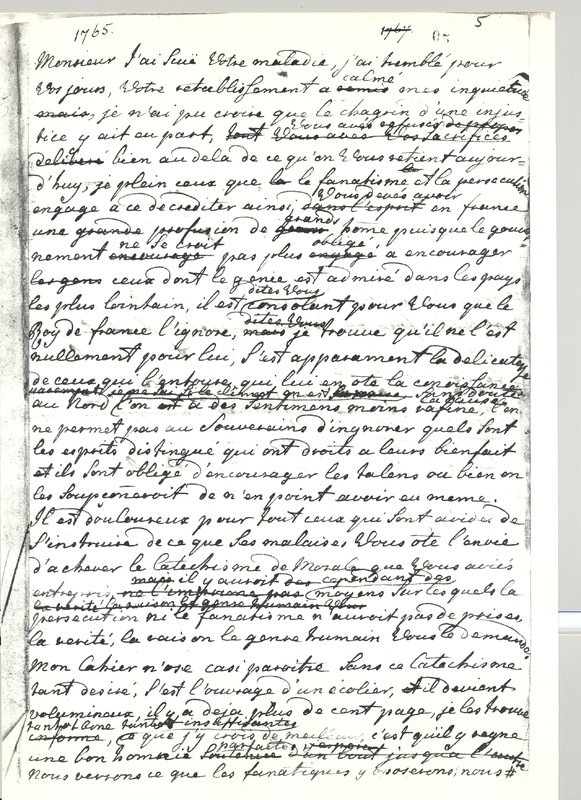 1765.
1767
5
Monsieur J'ai suë Votre maladie, j'ai tremblé pour
calmé
Vos jours, Votre retablissement a remis mes inquietudes
mais, je n'ai pu croire que le chagrin d'une injus
Vous avés
tice y ait eu part, tout Vous avés Vos sacrifices
deliberé bien au dela de ce qu'on Vous retient aujour-
d'huy, je plein ceux que la le fanatisme et la persecution
Vous devés avoir
engage a ce decrediter ainsi, dans l'esprit en france
grand
une grande profusion de home puisque le gouver
ne se croit obligé,
nement encourage pas plus engagé a encourager
les gens ceux dont le genie est admiré dans les pays
dites Vous
les plus lointain, il est consolant pour Vous que le
dites Vous
Roy de france l'ignore, mais je trouve qu'il ne l'est
nullement pour lui, s'est apparament la delicatesse
de ceux que l'entoure qui lui en ote la conoissance
au Nord l'on est a des sentimens moins rafiné, l'on
ne permet pas au Souverains d'ingnorer quels sont
les esprits distingué qui ont droits a leurs bienfait
et ils sont obligé d'encourager les talens ou bien on
les soupçoneroit de n'en point avoir eu meme.
Il est douloureux pour tout ceux qui sont avides de
s'instruire de ce que ses malaises Vous ote l'envie
d'achever le Catechisme de Morale que Vous aviés
mais il y auroit des cependant des
entrepris, ne l'imprime pas moyens sur lesquels la
la verité la raison le genre humain Vous
persecution ni le fanatisme n'auroit pas de prises
la verité, la raison le genre humain Vous le demande.
Mon Cahier n'ose casi paroitre sans ce Catechisme
tant desiré, s'est l'ouvrage d'un ecolier, et il devient
volumineux, il y a deja plus de cent page, je les trouve
tantot bone tantot insuffisantes
informe, ce que j'y crois de meilleur, c'est qu'il y regne
parfaite,
une bon homie soutenue d'un bout jusqu'a l'autre
nous verrons ce que les fanatiques y oposerons; nous #